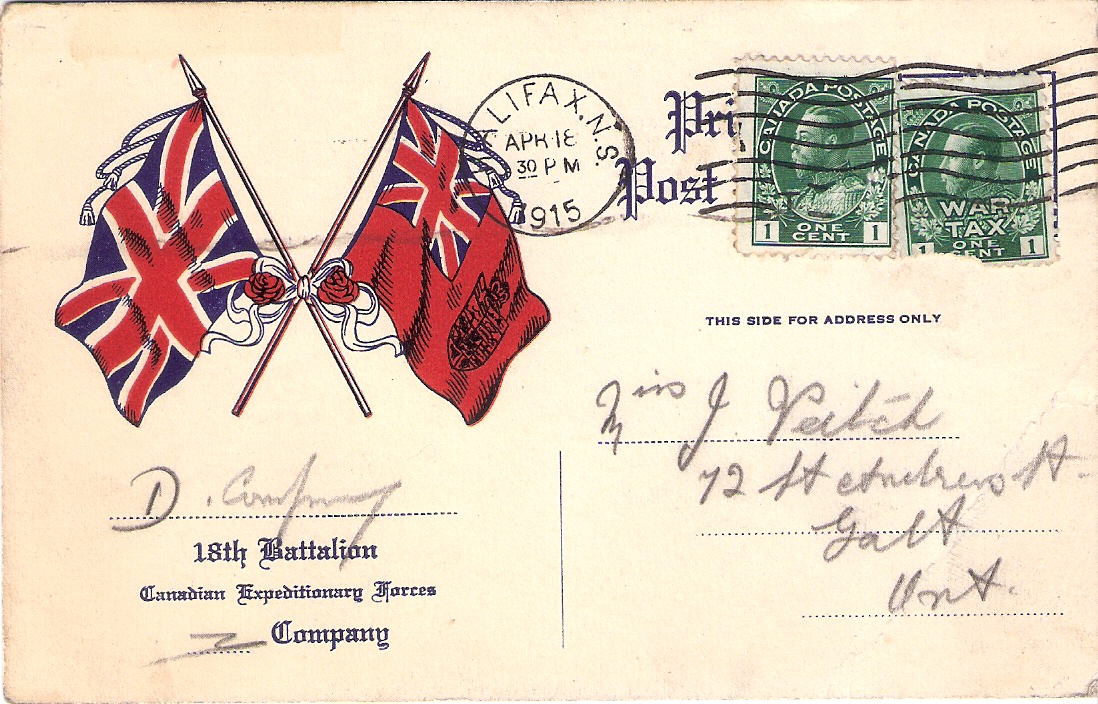 LIFAX, N.S.
APR 18
30 PM
1915
Pri
Post
CANADA POSTAGE
1 ONE CENT 1
CANADA POSTAGE
WAR TAX
1 ONE CENT 1
THIS SIDE FOR ADDRESS ONLY
Miss J. Veitch
72 St Andrews St.
Galt
Ont.
D. Company
18th Battalion
Canadian Expeditionary Forces
Company